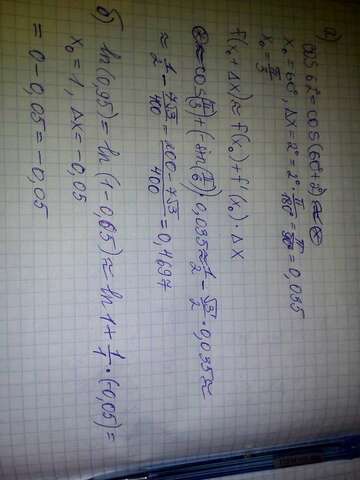 а)
cos 62 = cos(60°+2°) ≈ ⊗
x₀ = 60°, Δx = 2° = 2°·π/180° = π/90 = 0,035
x₀ = π/3
f(x₀ + Δx) ≈ f(x₀) + f'(x₀)·Δx
⊗ ≈ cos(π/3) + (-sin(π/3))·0,035 ≈ 1/2 - √3/2·0,035 ≈
≈ 1/2 - 7√3/400 = 200-7√3/400 = 0,4697
б) ln(0,95) = ln(1-0,05) ≈ ln 1 + 1/1·(-0,05) =
x₀ = 1, Δx = -0,05
= 0-0,05 = -0,05